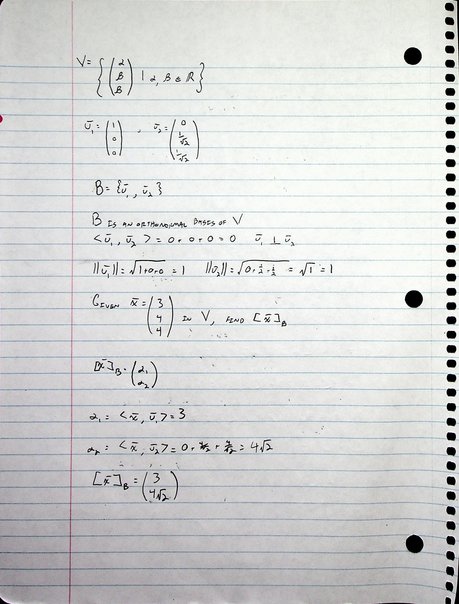 V = { (α β β) | α, β ∈ ℝ }
ū₁ = (1 0 0) , ū₂ = (0 1/√2 1/√2)
B = {ū₁, ū₂}
B IS AN ORTHONORMAL BASES OF V
<ū₁, ū₂> = 0 + 0 + 0 = 0 ū₁ ⊥ ū₂
||ū₁|| = √(1+0+0) = 1 ||ū₂|| = √(0 + 1/2 + 1/2) = √1 = 1
GIVEN x̄ = (3 4 4) IN V, FIND [x̄]_B
[x̄]_B = (α₁ α₂)
α₁ = <x̄, ū₁> = 3
α₂ = <x̄, ū₂> = 0 + 4/√2 + 4/√2 = 4√2
[x̄]_B = (3 4√2)